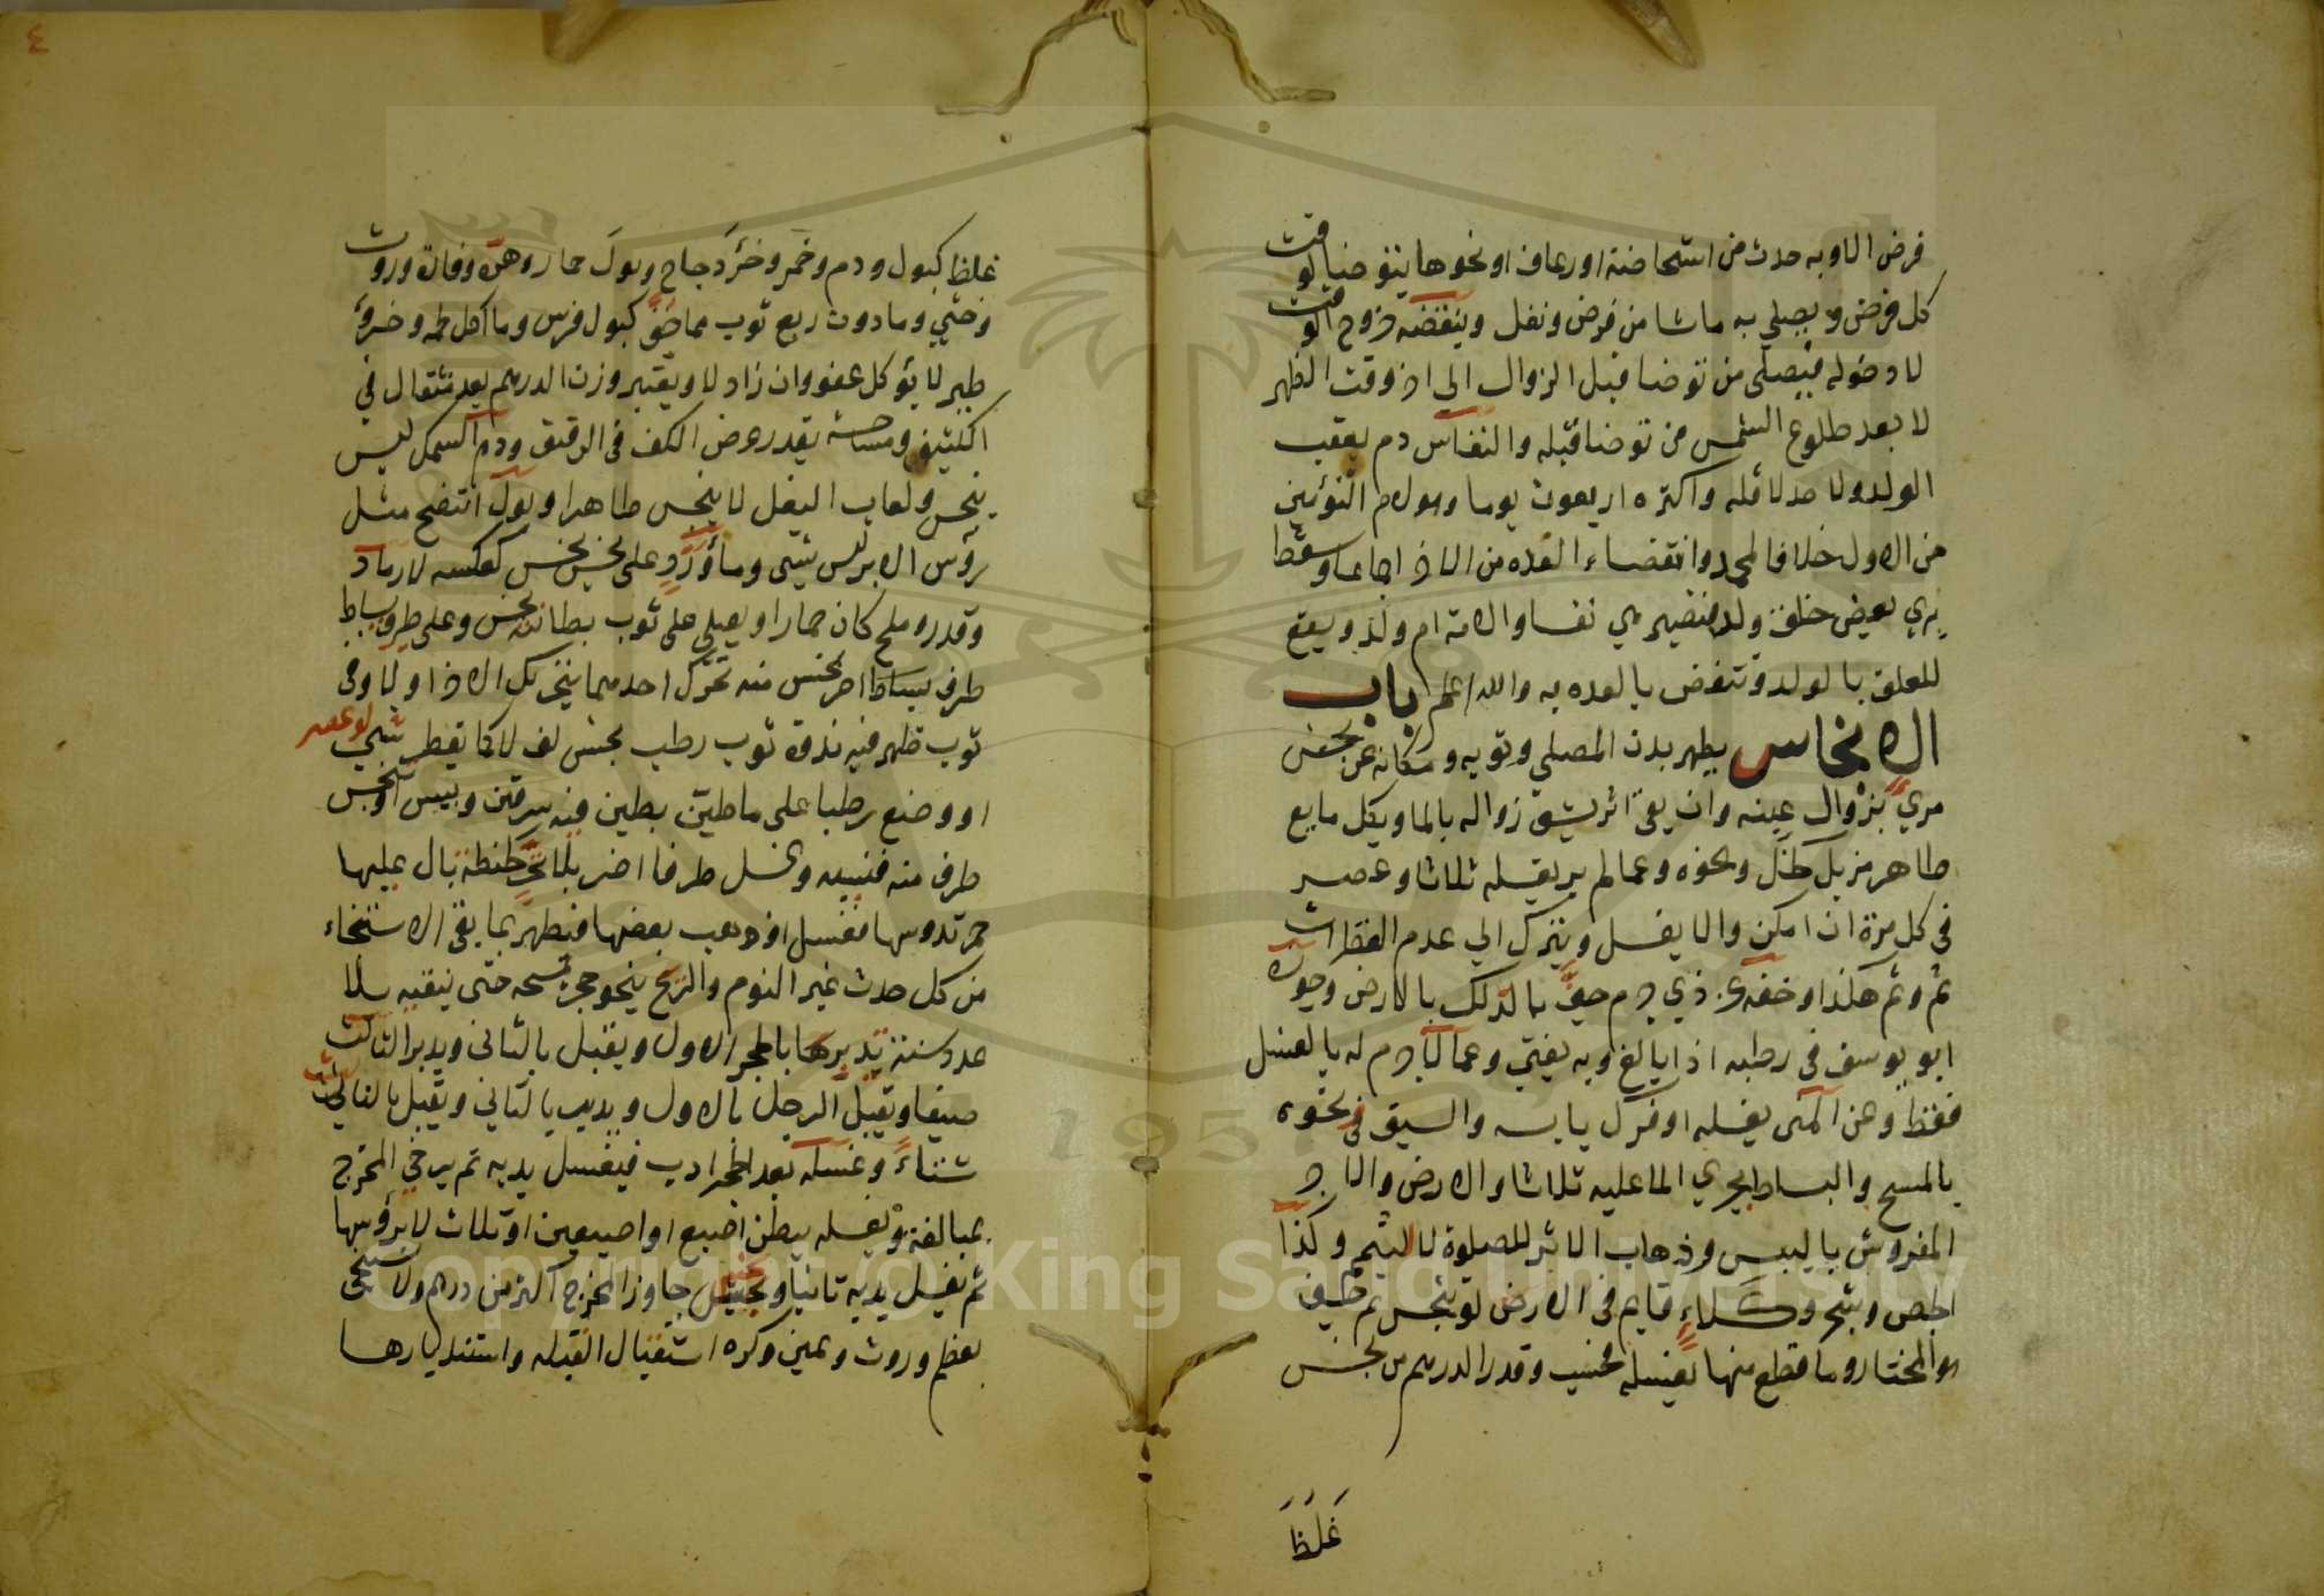 فرض الا وبه حدث من استحاضة او رعاف او نحوها يتوضيا لوقت
كل فرض ويصلي به ما شا من فرض ونفل وينقضه خروج الوقت
لا دخوله فيصلى من توضا قبل الزوال الى اخر وقت الظهر
لا بعد طلوع الشمس من توضا قبله والنفاس دم يعقب
الولد ولا حد لاقله واكثره اربعون يوما وهو لام التوئمين
من الاول خلافا لمحمد وانقضاء العده من الاخر اجماعا وسقط
يري بعض خلقه ولد فتصير هي نفسا والامة ام ولد ويقع
المعلق بالولد وتنقضى بالعده به والله اعلم باب
الانجاس يطهر بدن المصلي وثوبه ومكانه عن نجس
مري بزوال عينه وان بقى اثر يشق زواله بالما وبكل مايع
طاهر مزيل كخل ونحوه وعما لم ير بغسله ثلاثا وعصر
فى كل مرة ان امكن والا يغسل ويترك الي عدم القطرات
ثم وثم هكذا وخفه عن ذي جرم جف بالدلك بالارض وجوزه
ابو يوسف فى رطبه اذا بالغ وبه يفتي وعما لا جرم له بالغسل
فقط وعن المنى بغسله او فرك يابسه والسيف ونحوه
بالمسح والبساط بجري الما عليه ثلاثا والارض والاجر
المفروش باليبس وذهاب الاثر للصلوة لا للتيمم وكذا
الخص وشجر وكلاء قايم فى الارض لو تنجس ثم جف
هو المختار وما قطع منها بغسله فحسب وقدر الدرهم من نجس
غَلَظَ
٤
غلظ كبول ودم وخمر وخرؤ دجاج وبول حمار وهرة وفارة وروث
وخثي وما دون ربع ثوب مما خف كبول فرس وما اكل لحمه وخرؤ
طير لا يؤكل عفو وان زاد لا ويعتبر وزن الدرهم بعد مثقال في
الكثيف ومساحة بقدر عرض الكف فى الرقيق ودم السمك ليس
بنجس ولعاب البغل لا ينجس طاهرا وبول انتضح مثل
رؤس الابر ليس بشيء وماؤ ورد على نجس نجس كعكسه لا رماد
وقدر وملح كان حمارا ويصلى على ثوب بطانته نجس وعلى طرف بساط
طرف بساط اخر نجس منه تحرك احدهما بتحريك الاخر او لا وفى
ثوب ظهر فيه ندوة ثوب رطب نجس لف لا كما يقطر شي لو عصر
او وضع رطبا على ما طين بطين فيه سرقين ويبس او نجس
طرف منه فنسيه وغسل طرفا اخر بلا تحر كحنطة بال عليها
حمر تدوسها فغسل او ذهب بعضها فيطهر بما بقى الاستنجاء
من كل حدث غير النوم والريح بنحو حجر يمسحه حتى ينقيه بلا
عدد سنة يدبر بالحجر الاول ويقبل بالثانى ويدبر بالثالث
صيفا ويقبل الرجل بالاول ويدبر بالثاني ويقبل بالثالث
شتاء وغسله بعد الحجر ادب فيغسل يديه ثم يرخي المخرج
بمبالغة ويغسله ببطن اصبع او اصبعين او ثلاث لا برؤسها
ثم يغسل يديه ثانيا ويجب غسل نجس جاوز المخرج اكثر من درهم ولا يستنجى
بعظم وروث ويمين وكره استقبال القبله واستدبارها